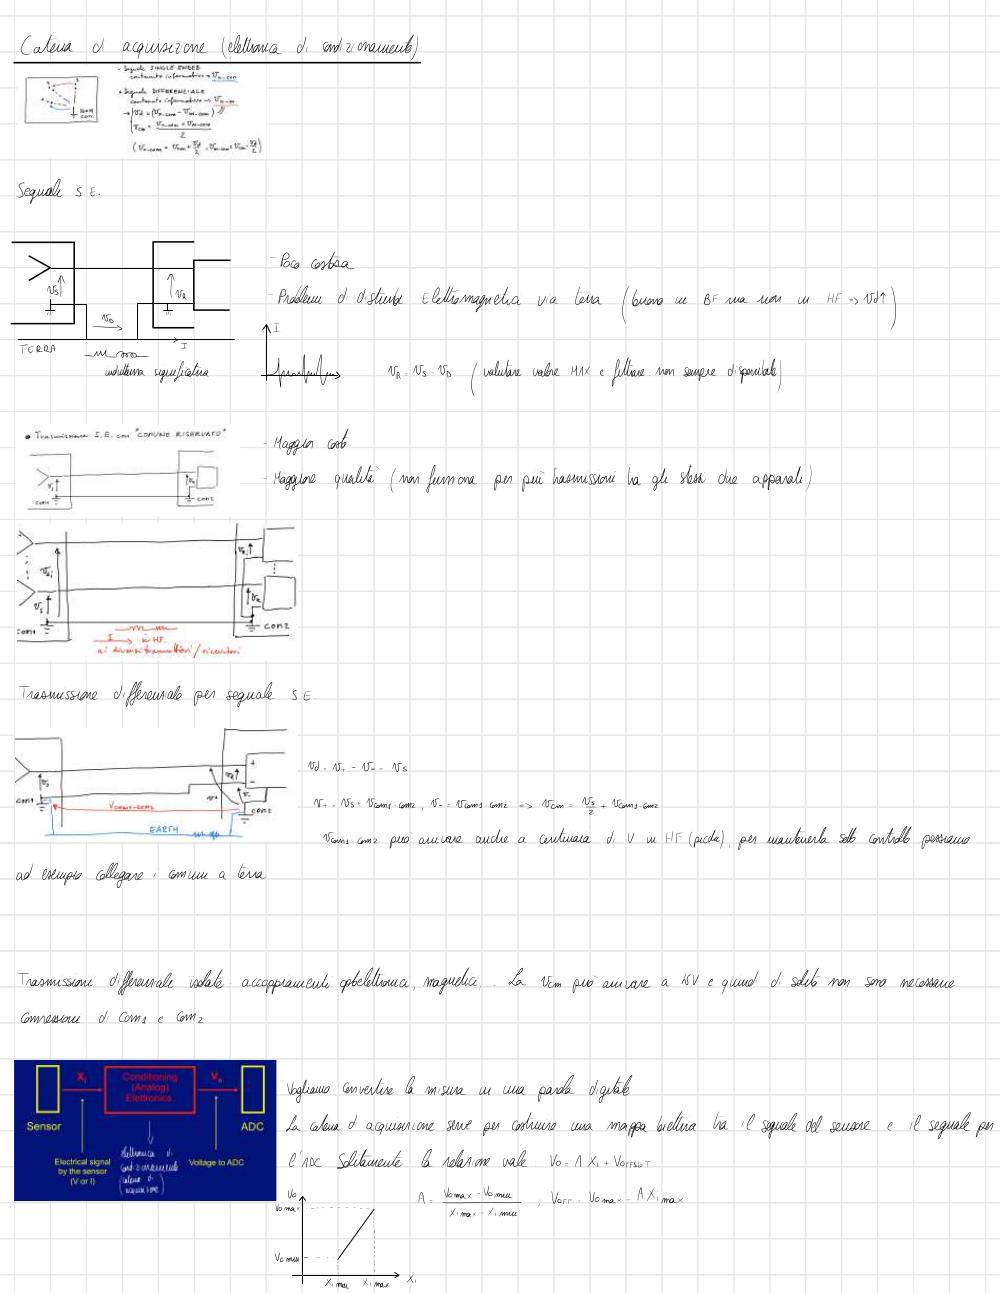 Catena di acquisizione (elettronica di condizionamento)
- Segnale SINGLE ENDED
contenuto informativo → Vn-com
• Segnale DIFFERENZIALE
contenuto informativo → Vn-m
→ Vd = (Vn-com - Vm-com)
Vcm = Vn-com + Vm-com / 2
(Vn-com = Vcm + Vd/2, Vm-com = Vcm - Vd/2)
Segnale S.E.
- Poco costosa
- Problemi di disturbi Elettromagnetici via terra (buono in BF ma non in HF → Vd↑)
VS
VR
VD
I
TERRA
I
induttanza significativa
VR = VS - VD (valutare valore MAX e filtrare non sempre disponibile)
• Trasmissione S.E. con "COMUNE RISERVATO"
COM1
COM2
- Maggior costo
- Maggiore qualità (non funziona per più trasmissioni tra gli stessi due apparati)
VS
VR
COM1
COM2
I → in HF.
ai diversi trasmettitori/ricevitori
Trasmissione differenziale per segnale S.E.
COM1
VCOM1-COM2
COM2
EARTH
Vd = V+ - V- = VS
V+ = VS + VCOM1-COM2, V- = VCOM1-COM2 => Vcm = VS/2 + VCOM1-COM2
VCOM1-COM2 può arrivare anche a centinaia di V in HF (picchi), per mantenerla sotto controllo possiamo
ad esempio collegare i comuni a terra
Trasmissione differenziale isolata: accoppiamento optoelettronico, magnetico, .. La Vcm può arrivare a kV e quindi di solito non sono necessarie
connessioni di COM1 e COM2
Sensor
Xi
Conditioning
(Analog)
Elettronics
Vo
ADC
Electrical signal
by the sensor
(V or I)
elettronica di
condizionamento
(catena di
acquisizione)
Voltage to ADC
Vogliamo convertire la misura in una parola digitale
La catena di acquisizione serve per costruire una mappa biettiva tra il segnale del sensore e il segnale per
l'ADC Solitamente la relazione vale Vo = A Xi + VOFFSET
A = Vo max - Vo min / Xi max - Xi min , VOFF = Vo max - A Xi max
Vo
Vo max
Vo min
Xi min
Xi max
Xi